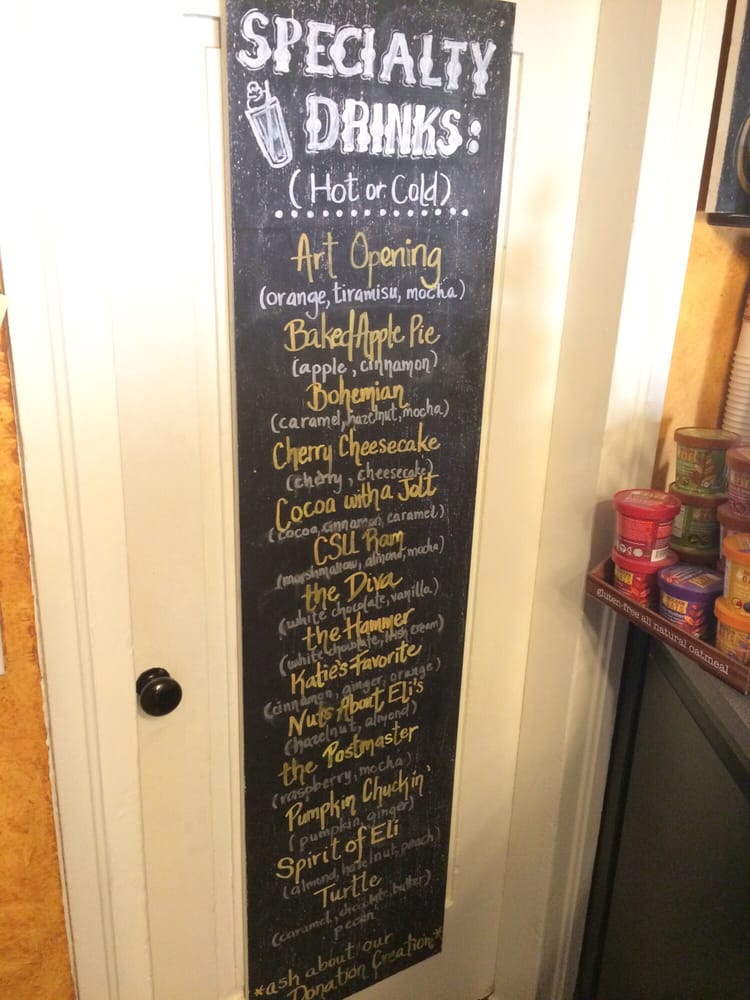 SPECIALTY
DRINKS:
(Hot or Cold)
Art Opening
(orange, tiramisu, mocha)
Baked Apple Pie
(apple, cinnamon)
Bohemian
(caramel, hazelnut, mocha)
Cherry Cheesecake
(cherry, cheesecake)
Cocoa with a Jolt
(cocoa, cinnamon, caramel)
CSU Ram
(marshmallow, almond, mocha)
the Diva
(white chocolate, vanilla)
the Hammer
(white chocolate, Irish cream)
Katie's Favorite
(cinnamon, ginger, orange)
Nuts About Eli's
(hazelnut, almond)
the Postmaster
(raspberry, mocha)
Pumpkin Chuckin'
(pumpkin, ginger)
Spirit of Eli
(almond, hazelnut, peach)
Turtle
(caramel, chocolate, butter)
pecan
*ask about our
Donation Creation*
gluten-free all natural oatmeal